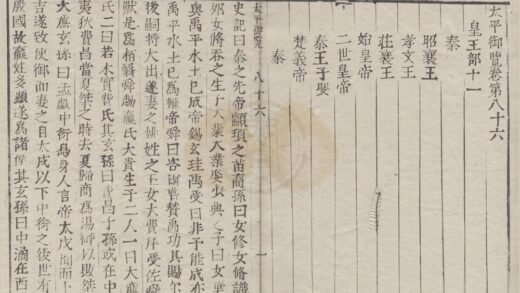 太平御覽卷第八十六
皇王部十一
秦
昭襄王
孝文王
莊襄王
始皇帝
二世皇帝
秦王子嬰
楚義帝
秦
太平御覽 八十六 一
史記曰秦之先帝顓頊之苗裔孫曰女修女脩織
女將吞之生子大業大業娶少典之子曰女華
與禹平水土已成帝錫玄珪禹受曰非予能成亦
禹平水土已爲輔帝舜曰咨爾費贊禹功其賜爾
後嗣將大出遂妻之姚姓之玉女大費拜受佐舜
獸是爲栢翳舜賜嬴氏大費生子二人一曰大廉
氏二曰若木實費氏其玄孫曰費昌子孫或在中
夷狄費昌當夏桀之時去夏歸商爲湯御以敗桀
大廉玄孫曰孟戲中衍鳥身人言帝太戊聞而卜
吉遂致使御而妻之自太戊以下中衍之後世有
殷國故嬴姓多顯遂爲諸侯其玄孫曰中潏在西